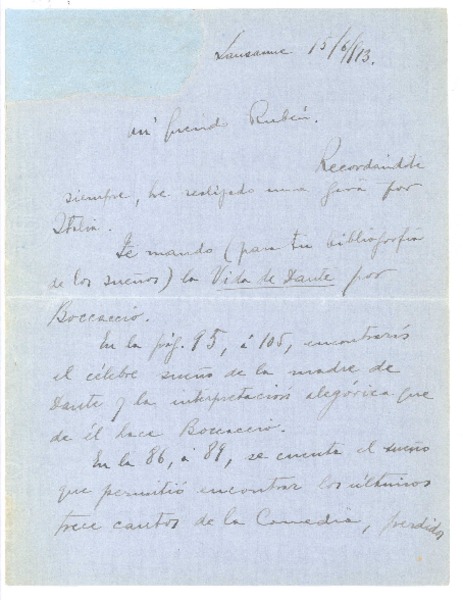 Lausanne 15/6/913.
Mi querido Rubén.
Recordándote
siempre, he realizado una gira por
Italia.
Te mando (para tu bibliografía
de los sueños) la Vida de Dante por
Boccaccio.
En la pág. 95, á 105, encontrarás
el célebre sueño de la madre de
Dante y la interpretación alegórica que
de él hace Boccaccio.
En la 86, á 89, se cuenta el sueño
que permitió encontrar los últimos
trece cantos de la Comedia, perdidos